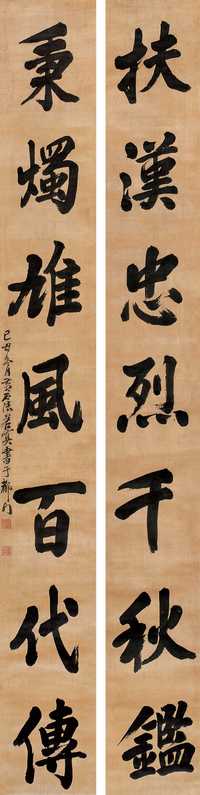 扶漢忠烈千秋鑑
秉燭雄風百代傳
己丑冬月
書于都門